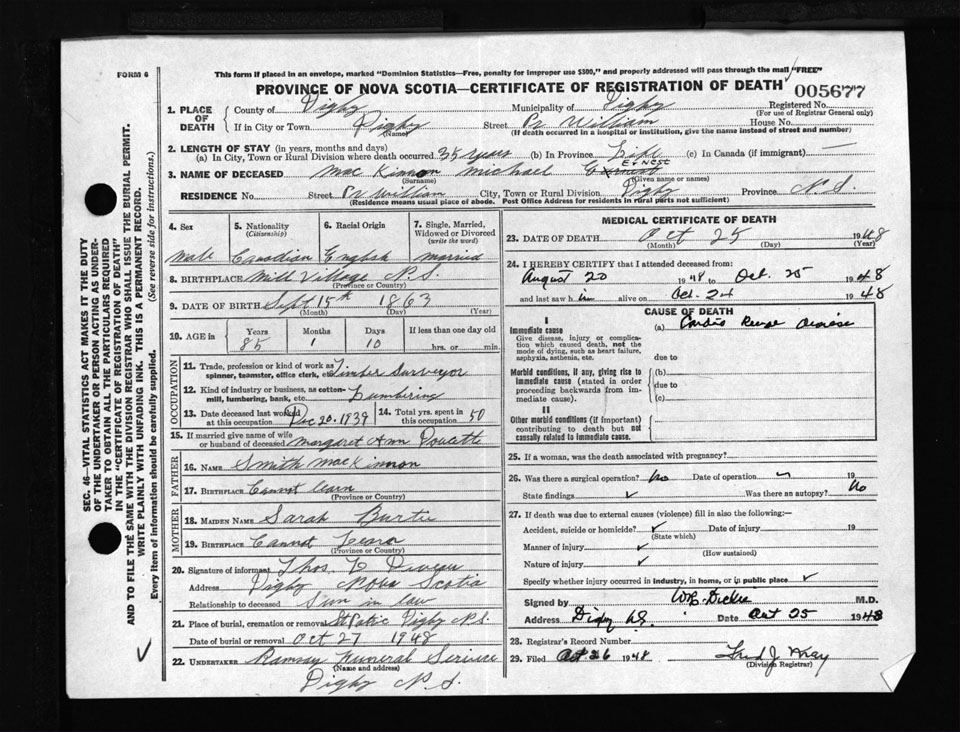 FORM 6
This form if placed in an envelope, marked "Dominion Statistics—Free, penalty for improper use $300," and properly addressed will pass through the mail "FREE"
PROVINCE OF NOVA SCOTIA—CERTIFICATE OF REGISTRATION OF DEATH
005677
1. PLACE OF DEATH
County of Digby Municipality of Digby Registered No.
(For use of Registrar General only)
If in City or Town Digby Street Pr William House No.
(Name) (If death occurred in a hospital or institution, give the name instead of street and number)
2. LENGTH OF STAY (in years, months and days)
(a) In City, Town or Rural Division where death occurred 35 years (b) In Province Life (c) In Canada (if immigrant) —
3. NAME OF DECEASED Mac Kinnon Michael Ernest
(Surname) (Given name or names)
RESIDENCE No. Street Pr William City, Town or Rural Division Digby Province N.S.
(Residence means usual place of abode. Post Office Address for residents in rural parts not sufficient)
SEC. 46—VITAL STATISTICS ACT MAKES IT THE DUTY
OF THE UNDERTAKER OR PERSON ACTING AS UNDER-
TAKER TO OBTAIN ALL THE PARTICULARS REQUIRED
IN THE "CERTIFICATE OF REGISTRATION OF DEATH"
AND TO FILE THE SAME WITH THE DIVISION REGISTRAR WHO SHALL ISSUE THE BURIAL PERMIT.
WRITE PLAINLY WITH UNFADING INK. THIS IS A PERMANENT RECORD.
Every item of information should be carefully supplied. (See reverse side for instructions.)
4. Sex 5. Nationality (Citizenship) 6. Racial Origin 7. Single, Married, Widowed or Divorced (write the word)
Male Canadian English Married
8. BIRTHPLACE Mill Village N.S.
(Province or Country)
9. DATE OF BIRTH Sept 15th 1863
(Month) (Day) (Year)
10. AGE in Years Months Days If less than one day old
85 1 10 hrs. or min.
OCCUPATION
11. Trade, profession or kind of work as spinner, teamster, office clerk, etc. Timber Surveyor
12. Kind of industry or business, as cotton-mill, lumbering, bank, etc. Lumbering
13. Date deceased last worked at this occupation Dec 20. 1939 14. Total yrs. spent in this occupation 50
15. If married give name of wife or husband of deceased Margaret Ann Doucette
FATHER
16. NAME Smith MacKinnon
17. BIRTHPLACE Cannot learn
(Province or Country)
MOTHER
18. MAIDEN NAME Sarah
19. BIRTHPLACE Cannot learn
(Province or Country)
20. Signature of informant Thos. Diveau
Address Digby Nova Scotia
Relationship to deceased Sun in law
21. Place of burial, cremation or removal St Patric Digby N.S.
Date of burial or removal Oct 27 1948
22. UNDERTAKER Ramsay Funeral Serivice
(Name and address)
Digby N.S.
MEDICAL CERTIFICATE OF DEATH
23. DATE OF DEATH Oct 25 1948
(Month) (Day) (Year)
24. I HEREBY CERTIFY that I attended deceased from:
August 20 1948 to Oct. 25 1948
and last saw him alive on Oct. 24 1948
CAUSE OF DEATH
I
Immediate cause (a) Cardio Renal Disease
Give disease, injury or complication which caused death, not the mode of dying, such as heart failure, asphyxia, asthenia, etc.
due to
Morbid conditions, if any, giving rise to immediate cause (stated in order proceeding backwards from immediate cause). (b)
due to
(c)
II
Other morbid conditions (if important) contributing to death but not causally related to immediate cause.
25. If a woman, was the death associated with pregnancy?
26. Was there a surgical operation? No Date of operation 19
State findings Was there an autopsy? No
27. If death was due to external causes (violence) fill in also the following:—
Accident, suicide or homicide? Date of injury 19
(State which)
Manner of injury
(How sustained)
Nature of injury
Specify whether injury occurred in industry, in home, or in public place
Signed by M.D.
Address Digby N.S. Date Oct 25 1948
28. Registrar's Record Number
29. Filed Oct 26 1948
(Division Registrar)